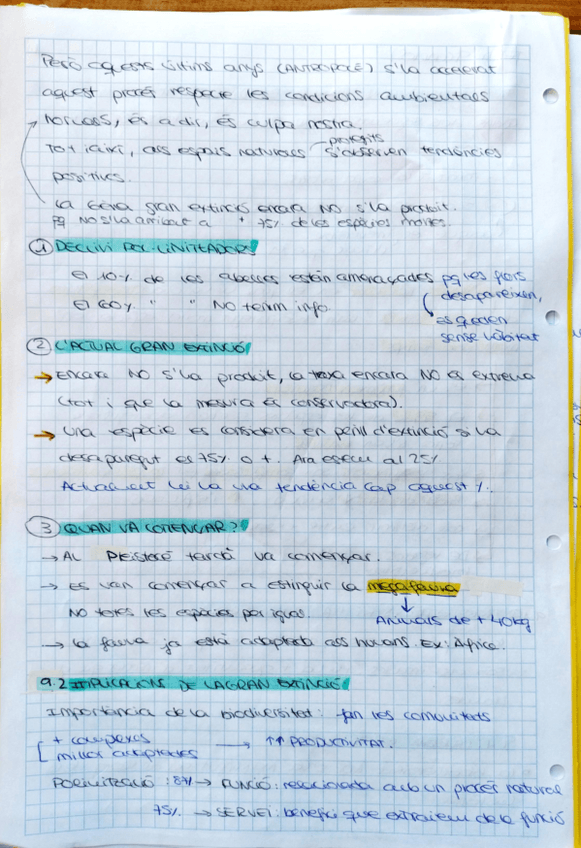 Però aquests últims anys (ANTROPOCÈ) s'ha accelerat
aquest procés respecte les condicions ambientals
normals, és a dir, és culpa nostra.
Tot i així, als espais naturals protegits s'observen tendències
positives.
La 6ena gran extinció encara NO s'ha produït.
pq NO s'ha arribat a + 75% de les espècies mortes.
1 DECLIVI POL·LINITZADORS
El 10% de les abelles estàn amenaçades pq les flors
desapareixen,
El 60% " " NO tenim info.
es queden
sense hàbitat
2 L'ACTUAL GRAN EXTINCIÓ
→ Encara NO s'ha produït, la taxa encara NO és extrema
(tot i que la mesura és conservadora).
→ Una espècie es considera en perill d'extinció si ha
desaparegut el 75% o +. Ara estem al 25%
Actualment hi ha una tendència cap aquest %.
3 QUAN VA COMENÇAR?
→ Al Pleistocè tardà va començar.
→ Es van començar a extingir la megafauna
NO totes les espècies per igual.
Animals de +40kg
→ La fauna ja està adaptada als humans. Ex: Àfrica.
9.2 IMPLICACIONS DE LA GRAN EXTINCIÓ
Importància de la biodiversitat: fan les comunitats
+ complexes
millor adaptades → ↑↑ PRODUCTIVITAT.
POL·LINITZACIÓ: 87% → FUNCIÓ: relacionada amb un procés natural
75% → SERVEI: benefici que extraiem de la funció